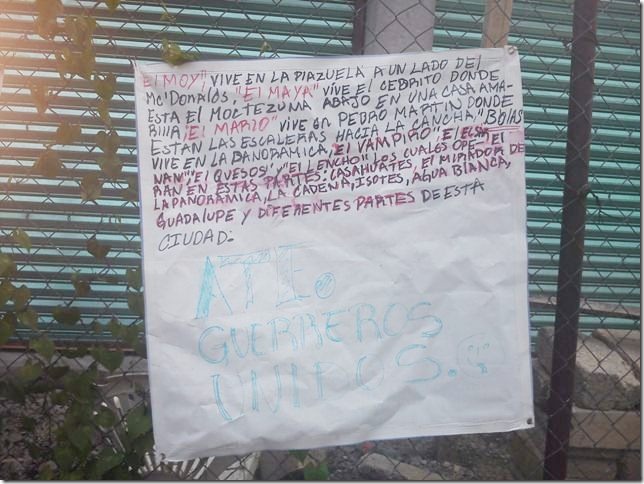 "El MOY", VIVE EN LA PLAZUELA A UN LADO DEL
Mc'DONALDS, "El MAYA" VIVE EL CEBRITO DONDE
ESTA El MOCTEZUMA ABAJO EN UNA CASA AMA-
RIllA, "El MARIO" VIVE EN PEDRO MARTIN DONDE
ESTAN LAS ESCALERAS HACIA LA CANCHA, "BOlAS"
VIVE EN LA PANORAMICA, "EL VAMPIRO",
NAN", "El QUESOS", Y "EL LENCHO", LOS CUALES OPE-
RAN EN ESTAS PARTES: CASAHUATES, El MIRADOR DE
LA PANORAMICA, LA CADENA, ISOTES, AGUA BLANCA,
GUADALUPE Y DIFERENTES PARTES DE ESTA
CIUDAD:
ATE.
GUERREROS
UNIDOS.